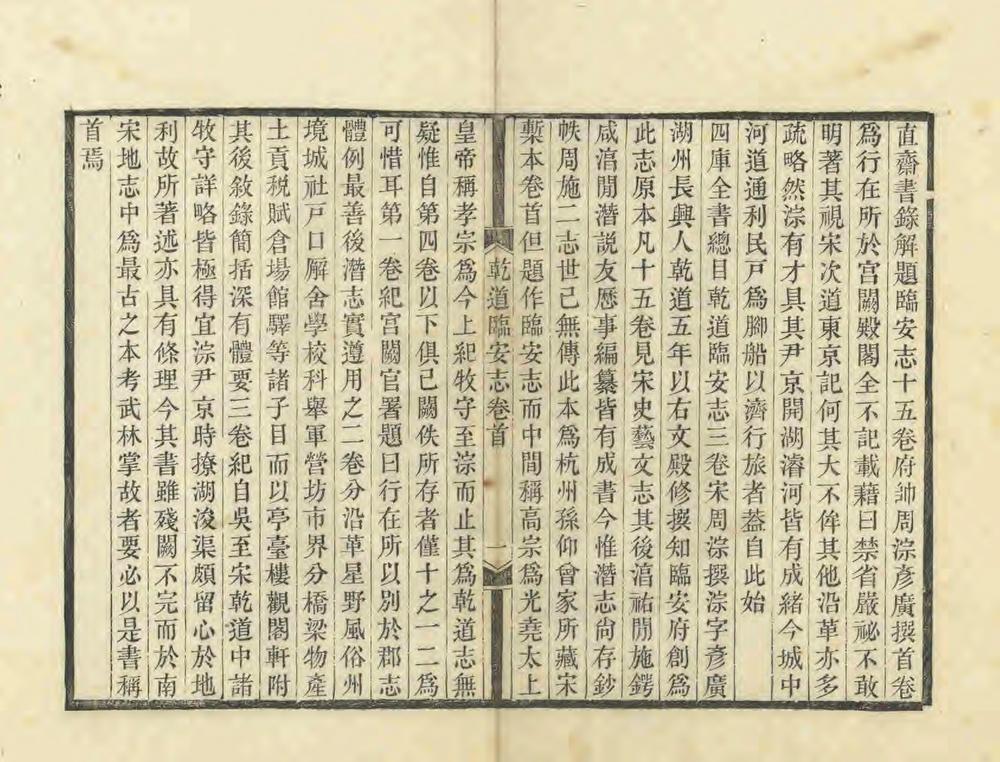 直齋書錄解題臨安志十五卷府帥周淙彥廣撰首卷
爲行在所於宫闕殿閣全不記載藉曰禁省嚴祕不敢
明著其視宋次道東京記何其大不侔其他沿革亦多
疏略然淙有才具其尹京開湖濬河皆有成緒今城中
河道通利民戸爲腳船以濟行旅者葢自此始
四庫全書總目乾道臨安志三卷宋周淙撰淙字彥廣
湖州長興人乾道五年以右文殿修撰知臨安府創爲
此志原本凡十五卷見宋史藝文志其後淳祐閒施鍔
咸淳閒潛説友歷事編纂皆有成書今惟潛志尙存鈔
帙周施二志世已無傳此本爲杭州孫仰曾家所藏宋
槧本卷首但題作臨安志而中間稱高宗爲光堯太上
乾道臨安志卷首
一
皇帝稱孝宗爲今上紀牧守至淙而止其爲乾道志無
疑惟自第四卷以下俱已闕佚所存者僅十之一二爲
可惜耳第一卷紀宫闕官署題曰行在所以別於郡志
體例最善後潛志實遵用之二卷分沿革星野風俗州
境城社戸口廨舍學校科舉軍營坊市界分橋梁物產
土貢稅賦倉場館驛等諸子目而以亭臺樓觀閣軒附
其後敘錄簡括深有體要三卷紀自吳至宋乾道中諸
牧守詳略皆極得宜淙尹京時撩湖浚渠頗留心於地
利故所著述亦具有條理今其書雖殘闕不完而於南
宋地志中爲最古之本考武林掌故者要必以是書稱
首焉